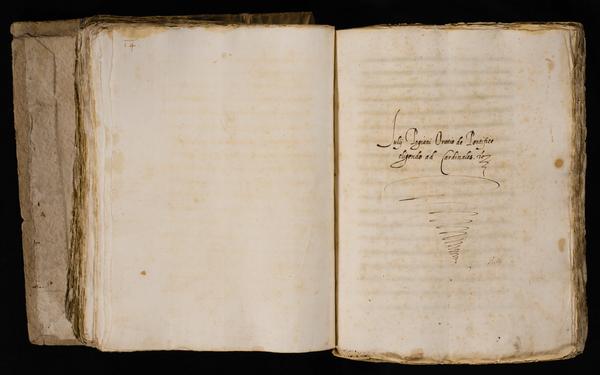 14
Julij Pogiani Oratio de Pontifice
eligendo ad Cardinales.